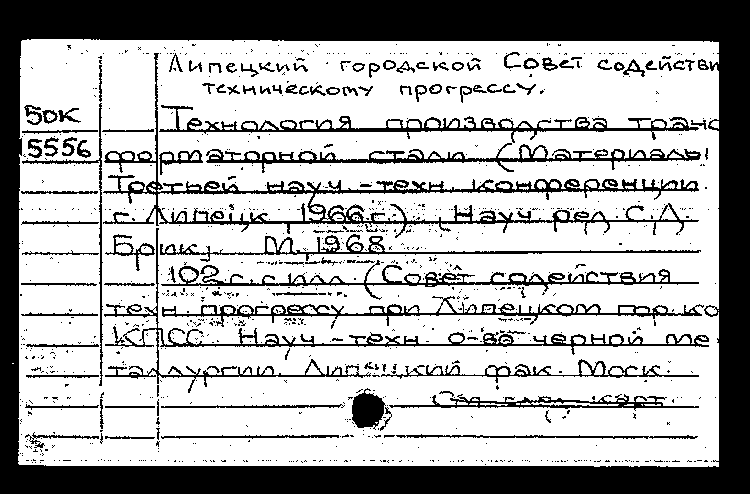 Липецкий городской Совет содействи
техническому прогрессу.
50к Технология производства транс
5556 форматорной стали (Материалы
Третьей науч.-техн. конференции.
г. Липецк, 1966 г.). (Науч. ред. С.Д.
Брик). М., 1968.
102 с. с илл. (Совет содействия
техн. прогрессу при Липецком гор. ко
КПСС. Науч.-техн. о-во черной ме
таллургии. Липецкий фак. Моск.
См. след. карт.